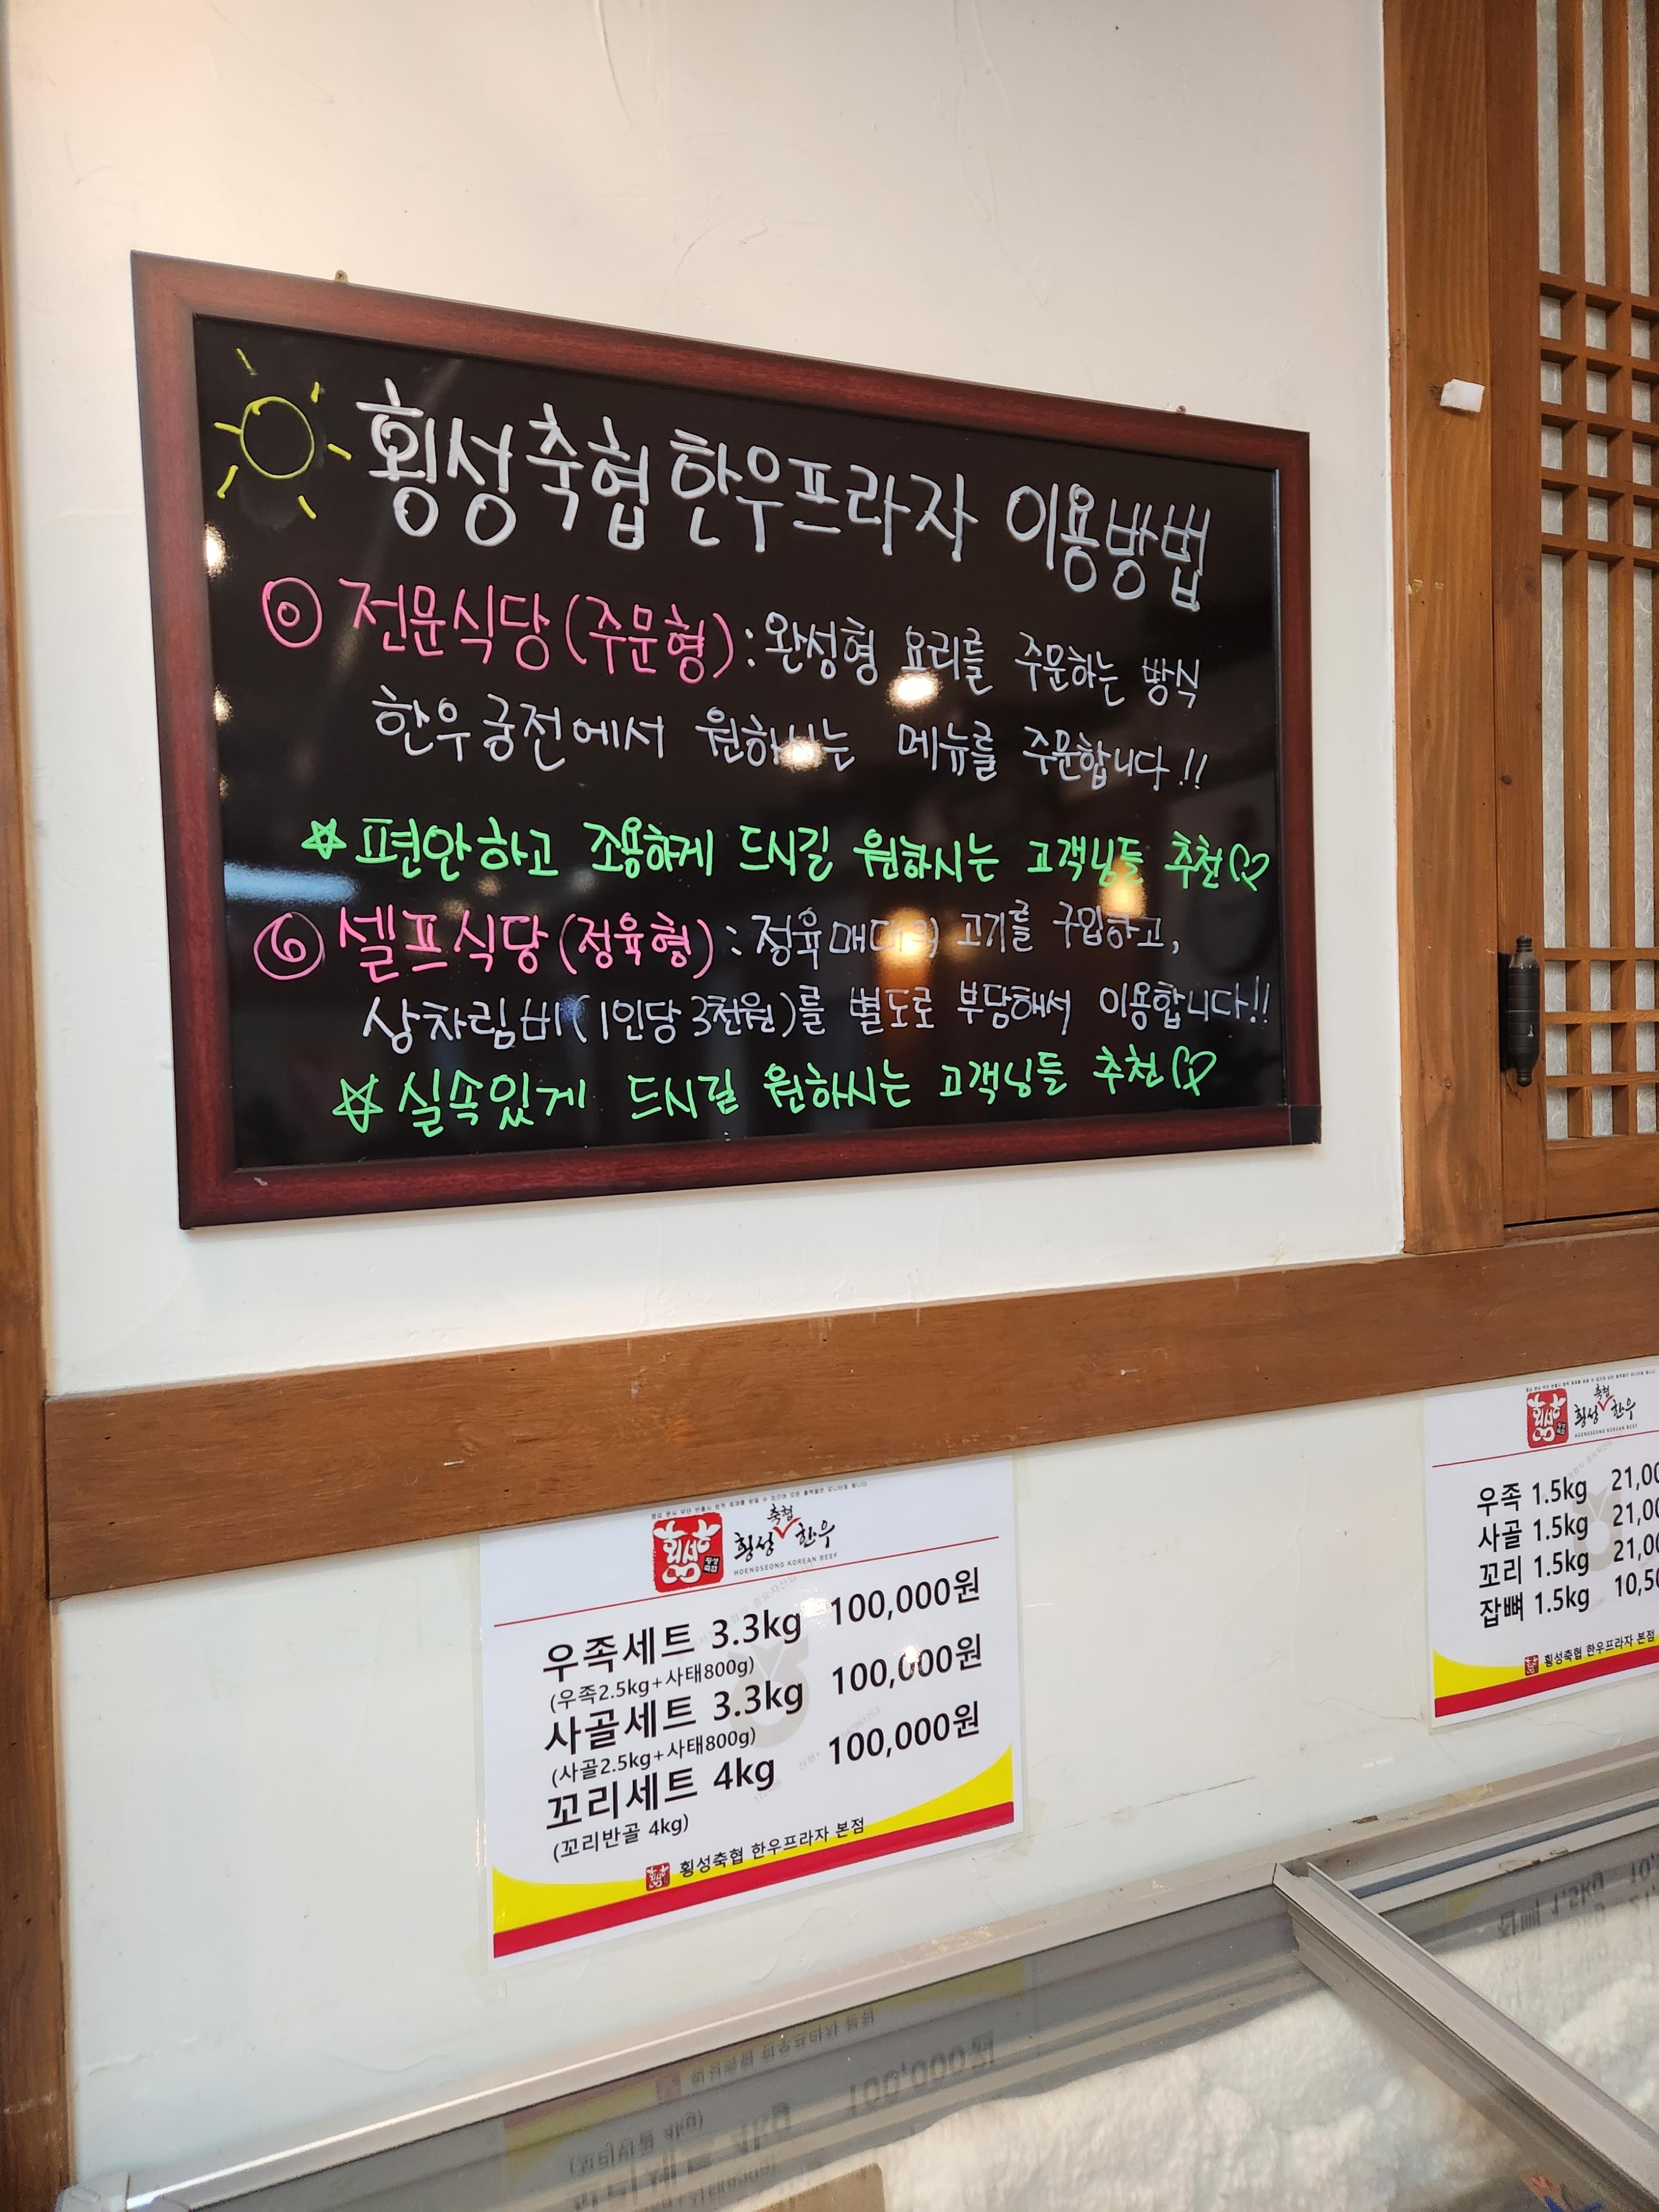 횡성축협한우프라자 이용방법
전문식당(주문형):완성형 요리를 주문하는 방식
한우궁전에서 원하시는 메뉴를 주문합니다!!
편안하고 조용하게 드시길 원하시는 고객님들 추천
셀프식당(정육형): 정육매대의 고기를 구입하고,
상차림비(1인당 3천원)를 별도로 부담해서 이용합니다!!
실속있게 드시길 원하시는 고객님들 추천
횡성
축협
횡성 한우
HOENGSEONG KOREAN BEEF
우족세트 3.3kg 100,000원
(우족2.5kg+사태800g)
사골세트 3.3kg 100,000원
(사골2.5kg+사태800g)
꼬리세트 4kg 100,000원
(꼬리반골 4kg)
횡성축협 한우프라자 본점
횡성
축협
횡성 한우
HOENGSEONG KOREAN BEEF
우족 1.5kg 21,00
사골 1.5kg 21,00
꼬리 1.5kg 21,00
잡뼈 1.5kg 10,50
횡성축협 한우프라자 본점